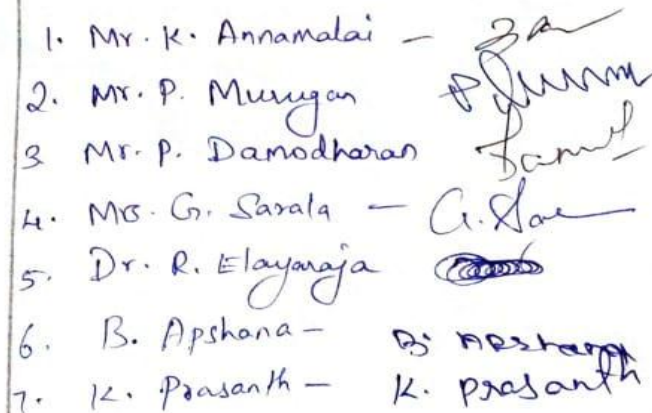 1. Mr. K. Annamalai -
2. Mr. P. Murugan
3 Mr. P. Damodharan
4. Mrs. G. Sarala - G. Sar
5. Dr. R. Elayaraja
6. B. Apshana - B. Apshana
7. K. Prasanth - K. Prasanth